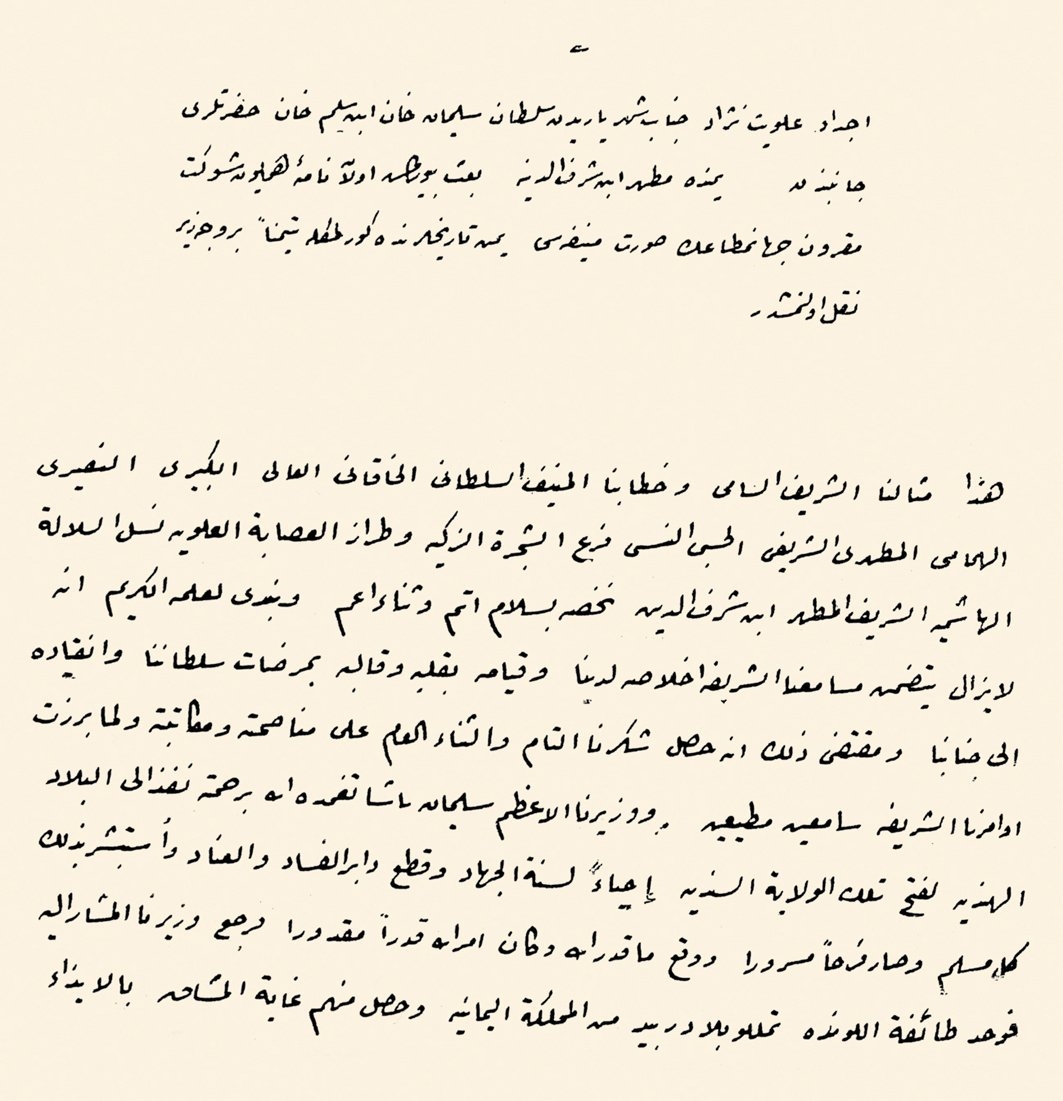 اجداد علويت نژاد جناب شهرياريدن سلطان سليمان خان ابن سليم خان حضرتلرى
جانبندن يمنده مطهر ابن شرف الدينه بعث بيوريلان اولا نامهٔ همايون شوكت
مقرون جهانمطاعك صورت منيفه‌سى يمن تاريخلرنده كورلمكله تيمناً بروجه زير
نقل اولنمشدر
هذا مثالنا الشريف السامى وخطابنا المنيف السلطانى الخاقانى العالى الكبيرى النصيرى
الهمامى المطهرى الشريفى الحسيى النسيبى فرع الشجرة الزكيه وطراز العصابة العلويه نسل السلالة
الهاشميه الشريف المطهر ابن شرف الدين نخصه بسلام اتم وثناء اعم ونبدى لعلمه الكريم انه
لايزال يتضمن مسامعنا الشريفه اخلاصه لدينا وقيامه بقلبه وقالبه بمرضات سلطاننا وانقياده
الى جنابنا ومقتضى ذلك انه حصل شكرنا التام والثناء العام على مناصحته ومكاتبته ولما برزت
اوامرنا الشريفه سامعين مطيعين ووزيرنا الاعظم سليمان پاشا تغمده الله برحمة نفذ الى البلاد
الهنديه لفتح تلك الولاية السنديه إحياءً لسنة الجهاد وقطع دابر الفساد والعناد وأستبشر بذلك
كل مسلم وصار فرحاً مسرورا ووقع ما قدر الله وكان امر الله قدراً مقدورا فرجع وزيرنا المشار اليه
فوجد طائفة اللونده تملكو بلاد زبيد من المملكة اليمانيه وحصل منهم غاية المشاق بالايذاء